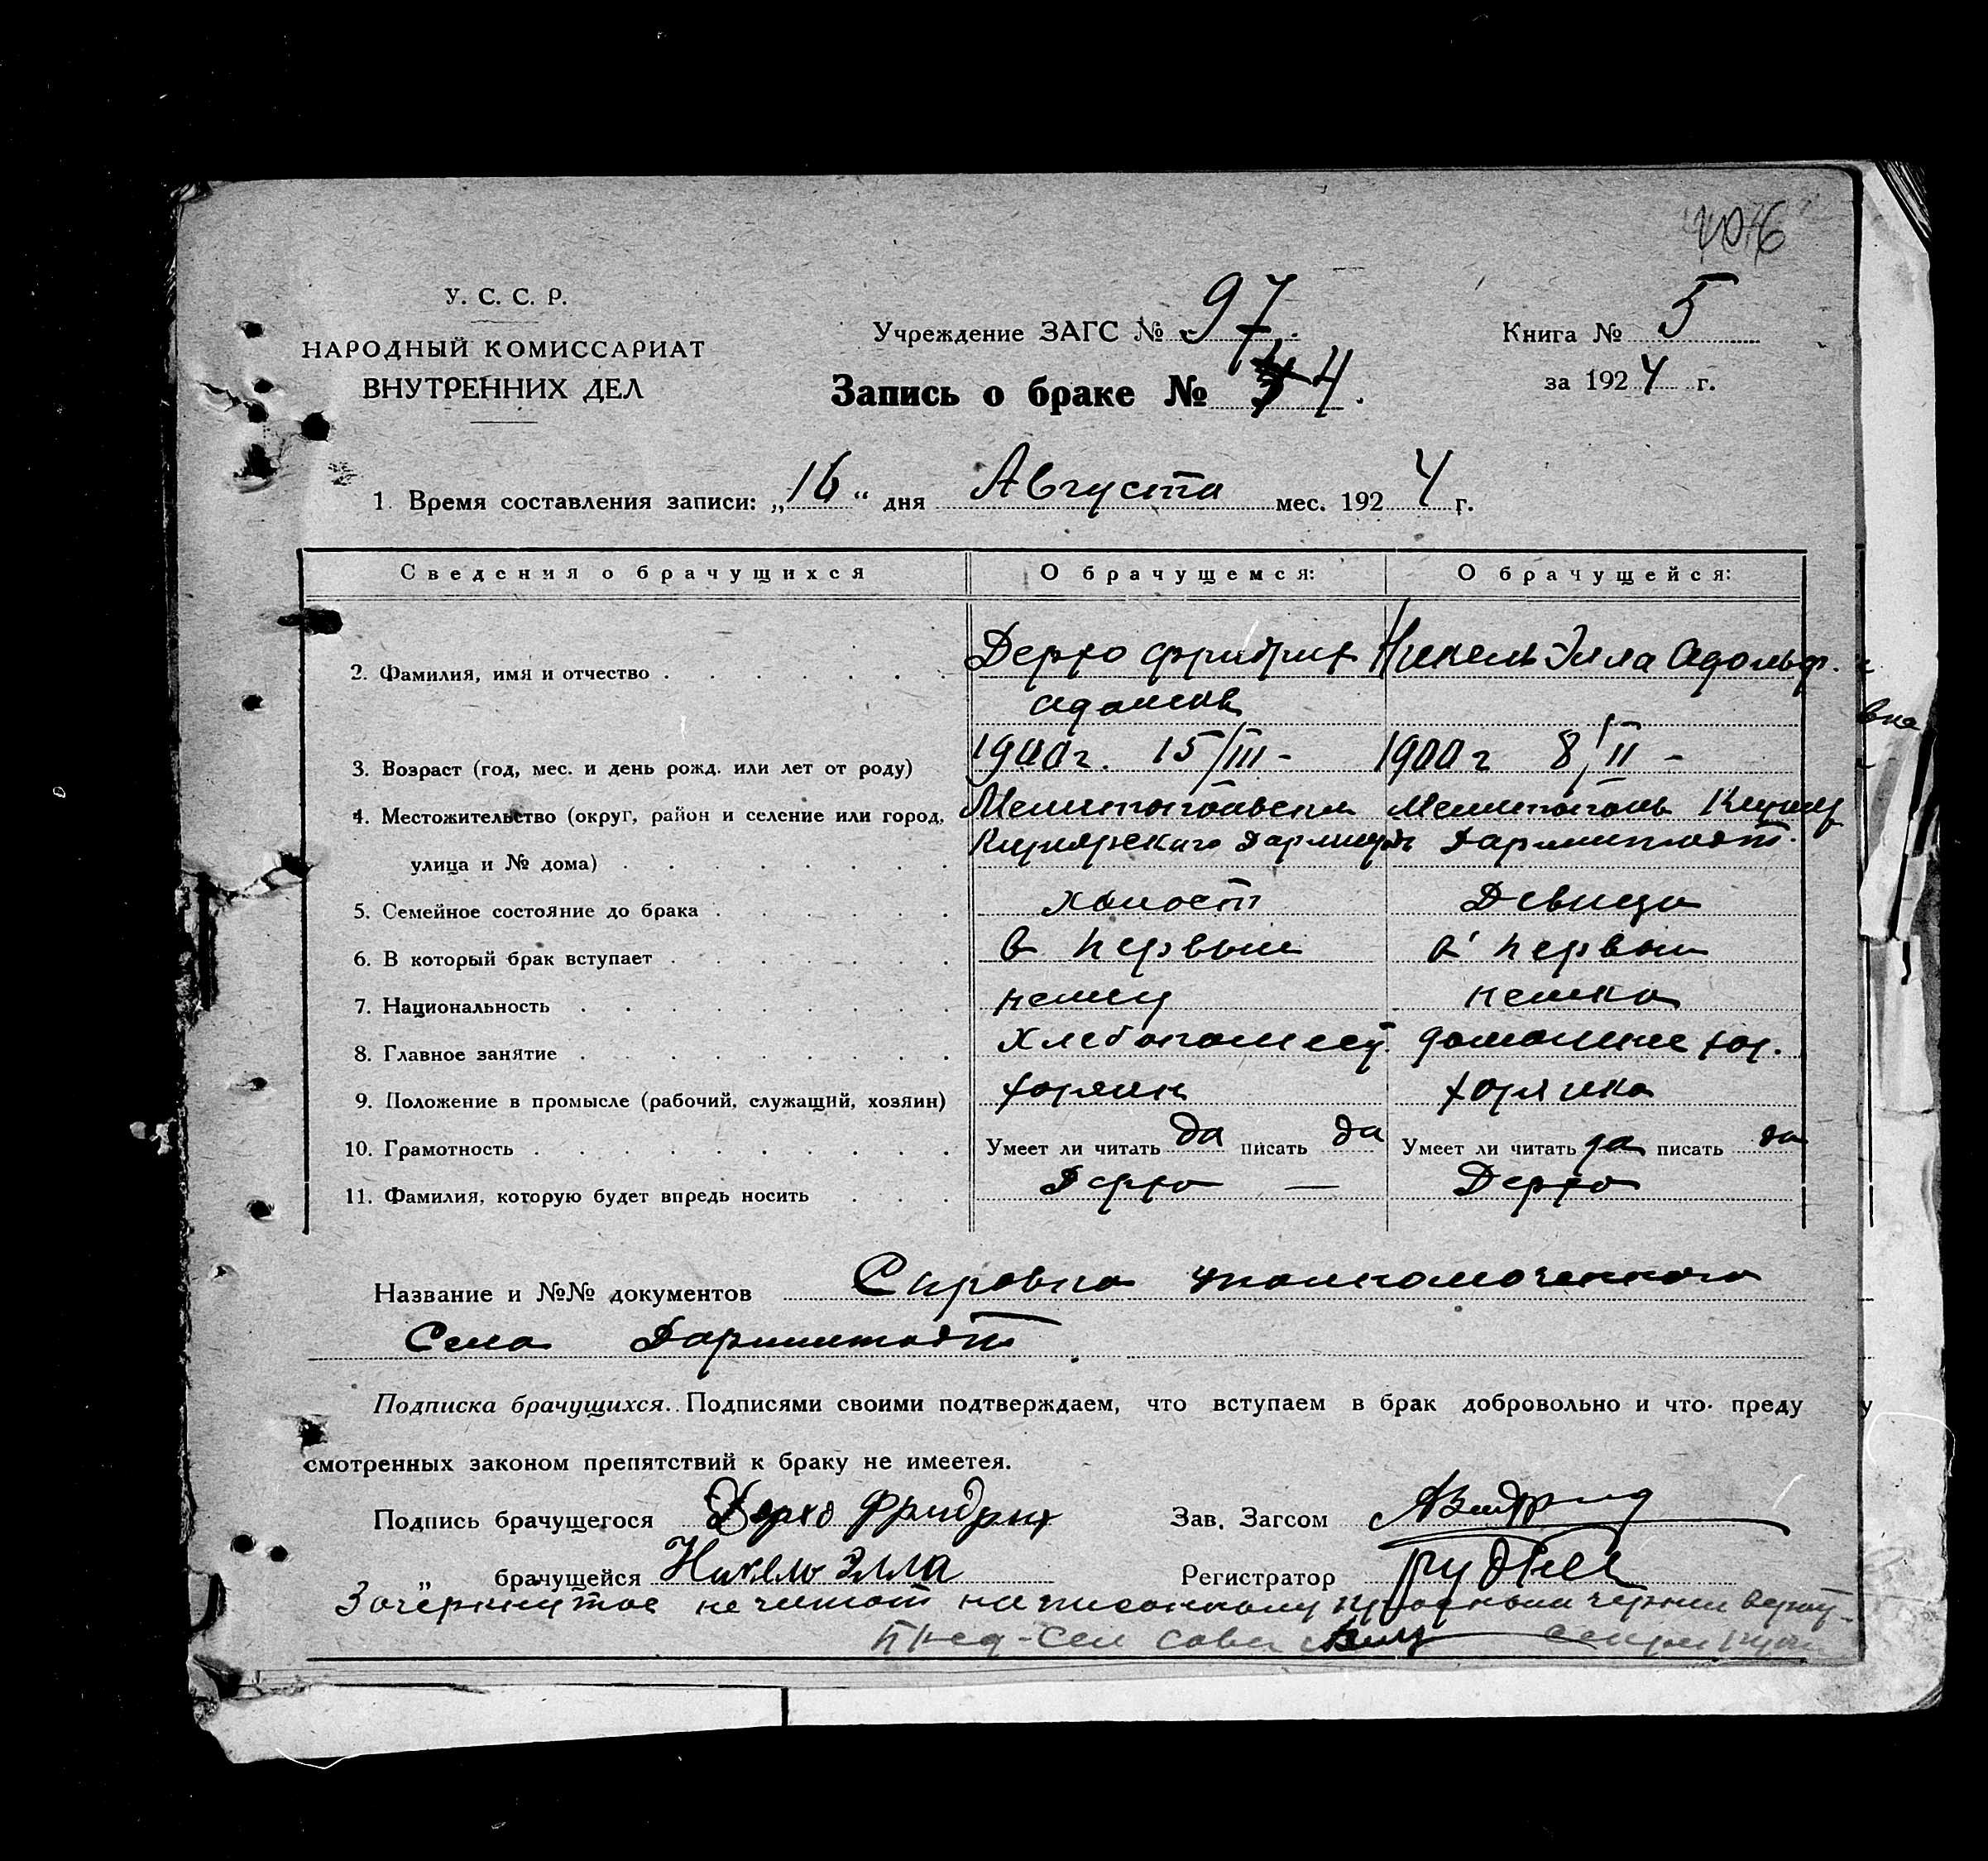 У. С. С. Р.
НАРОДНЫЙ КОМИССАРИАТ
ВНУТРЕННИХ ДЕЛ
Учреждение ЗАГС № 97.
Книга № 5
Запись о браке № 4.
за 1924 г.
1. Время составления записи: „16“ дня Августа мес. 1924 г.
Сведения о брачущихся О брачущемся: О брачущейся:
2. Фамилия, имя и отчество Дерхо Фридрих Никель Элла Адольф.
Адамов
3. Возраст (год, мес. и день рожд. или лет от роду) 1900 г. 15/III - 1900 г 8/II -
4. Местожительство (округ, район и селение или город, Мелитопольский Мелитополь
улица и № дома) Дармштадт.
5. Семейное состояние до брака холост Девица
6. В который брак вступает в первый в первый
7. Национальность немец немка
8. Главное занятие хлебопашец домашнее хоз.
9. Положение в промысле (рабочий, служащий, хозяин) хозяин хозяйка
10. Грамотность Умеет ли читать да писать да Умеет ли читать да писать да
11. Фамилия, которую будет впредь носить Дерхо — Дерхо
Название и №№ документов Справка уполномоченного
Села Дармштадт.
Подписка брачущихся. Подписями своими подтверждаем, что вступаем в брак добровольно и что преду
смотренных законом препятствий к браку не имеетея.
Подпись брачущегося Дерхо Фридрих Зав. Загсом
„ брачущейся Никель Элла Регистратор
Зачеркнутое не читать написанному верить
Пред. Сел совета